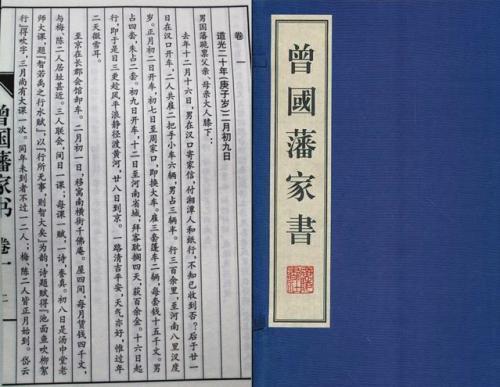 卷一
道光二十年(庚子岁)二月初九日
男国藩跪禀父亲、母亲大人膝下:
去年十二月十六日,男在汉口寄家信,付湘潭人和纸行,不知已收到否?后于廿一
日在汉口开车,二人共雇二把手小车六辆,男占三辆半。行三百余里,至河南八里汊度
岁。正月初二日开车,初七日至周家口,即换大车。雇三套篷车二辆,每套钱十五千文。男
占四套,朱占二套。初九日开车,十二日至河南省城,拜客耽搁四天,获百余金。十六日起
行,即于是日三更趁风平浪静径渡黄河。廿八日到京。一路清吉平安,天气亦好,惟过年
二天微雪耳。
至京在长郡会馆卸车。二月初一日,移寓南横街千佛庵。屋四间,每月赁钱四千文,
与梅、陈二人居址甚近。三人联会,间日一课;每课一赋一诗,誊真。初八日是汤中堂老
师大课,题“智若禹之行水赋”,以“行所无事,则智大矣”为韵,诗题赋得“池面鱼吹柳絮
行”,得吹字。三月尚有大课一次。同年未到者不过一二人,梅、陈二人皆正月始到。岱云
曾国藩家书 卷一 二
曾國藩家書